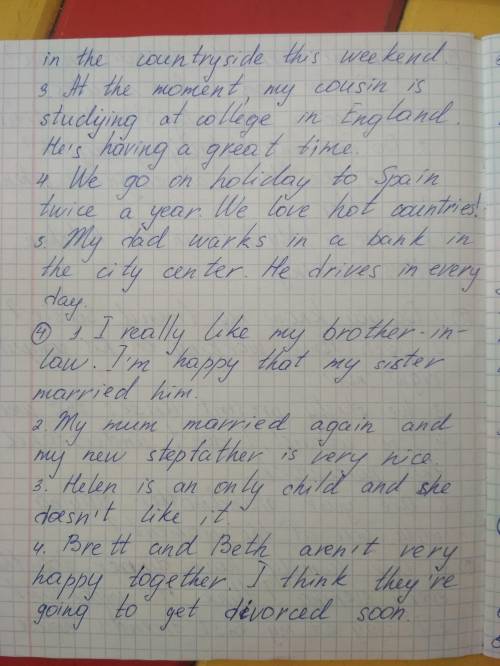 in the countryside this weekend.
3. At the moment, my cousin is
studying at college in England.
He's having a great time.
4. We go on holiday to Spain
twice a year. We love hot countries!
5. My dad works in a bank in
the city center. He drives in every
day.
4 1. I really like my brother-in-
law. I'm happy that my sister
married him.
2. My mum married again and
my new stepfather is very nice.
3. Helen is an only child and she
doesn't like it.
4. Brett and Beth aren't very
happy together. I think they're
going to get divorced soon.